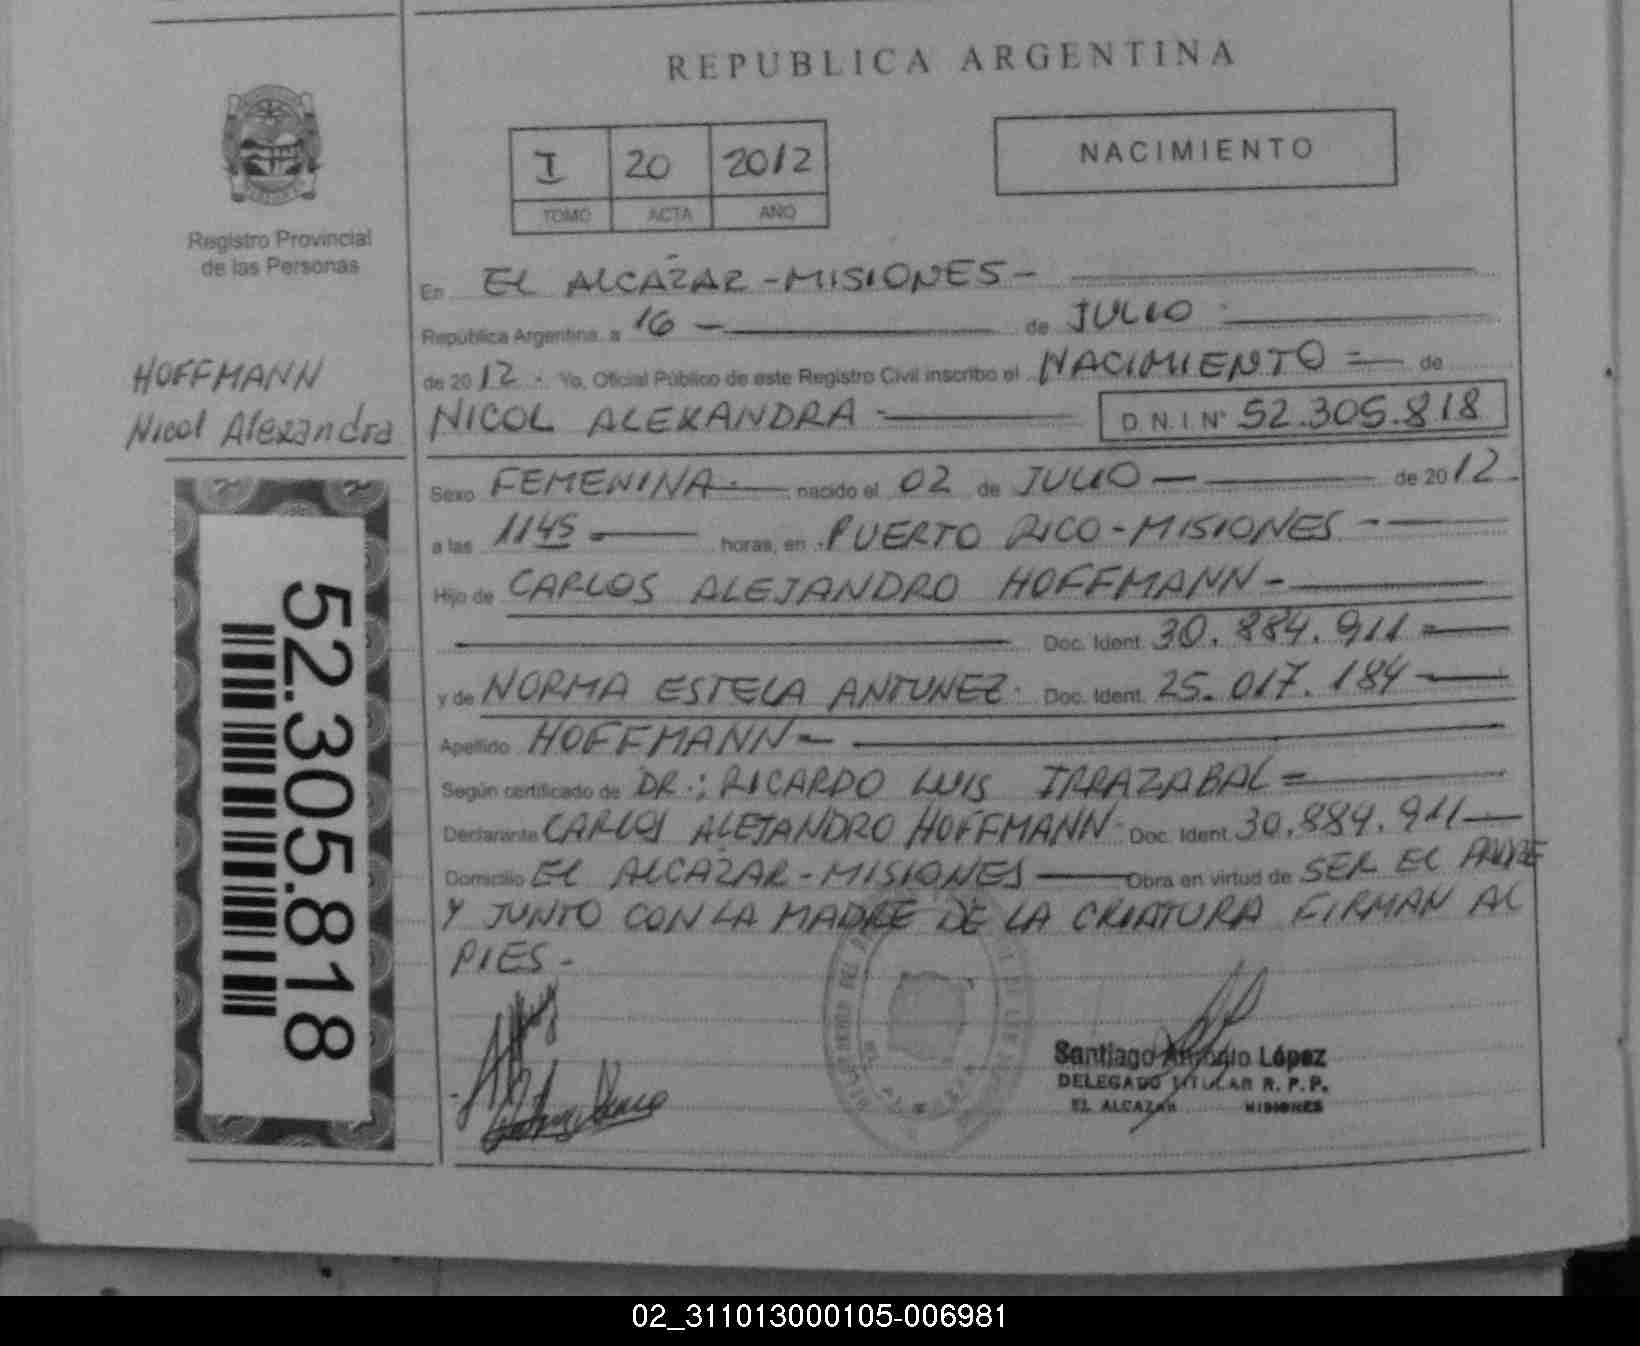 REPUBLICA ARGENTINA
I 20 2012
TOMO ACTA AÑO
NACIMIENTO
Registro Provincial
de las Personas
HOFFMANN
Nicol Alexandra
52.305.818
En EL ALCAZAR - MISIONES -
República Argentina, a 16 - de JULIO
de 2012. Yo, Oficial Público de este Registro Civil inscribo el NACIMIENTO = de
NICOL ALEXANDRA - D N.I.Nº 52.305.818
Sexo FEMENINA. nacido el 02 de JULIO - de 2012.
a las 1145 horas, en PUERTO RICO - MISIONES -
Hijo de CARLOS ALEJANDRO HOFFMANN -
Doc. Ident. 30.884.911 =
y de NORMA ESTELA ANTUNEZ. Doc. Ident. 25.017.184 -
Apellido HOFFMANN -
Según certificado de DR.: RICARDO LUIS IRRAZABAL =
Declarante CARLOS ALEJANDRO HOFFMANN. Doc. Ident. 30.884.911 -
Domicilio EL ALCAZAR - MISIONES - Obra en virtud de SER EL PADRE
Y JUNTO CON LA MADRE DE LA CRIATURA FIRMAN AL
PIES -
Santiago Antonio López
DELEGADO TITULAR R. P. P.
EL ALCAZAR MISIONES
02_311013000105-006981